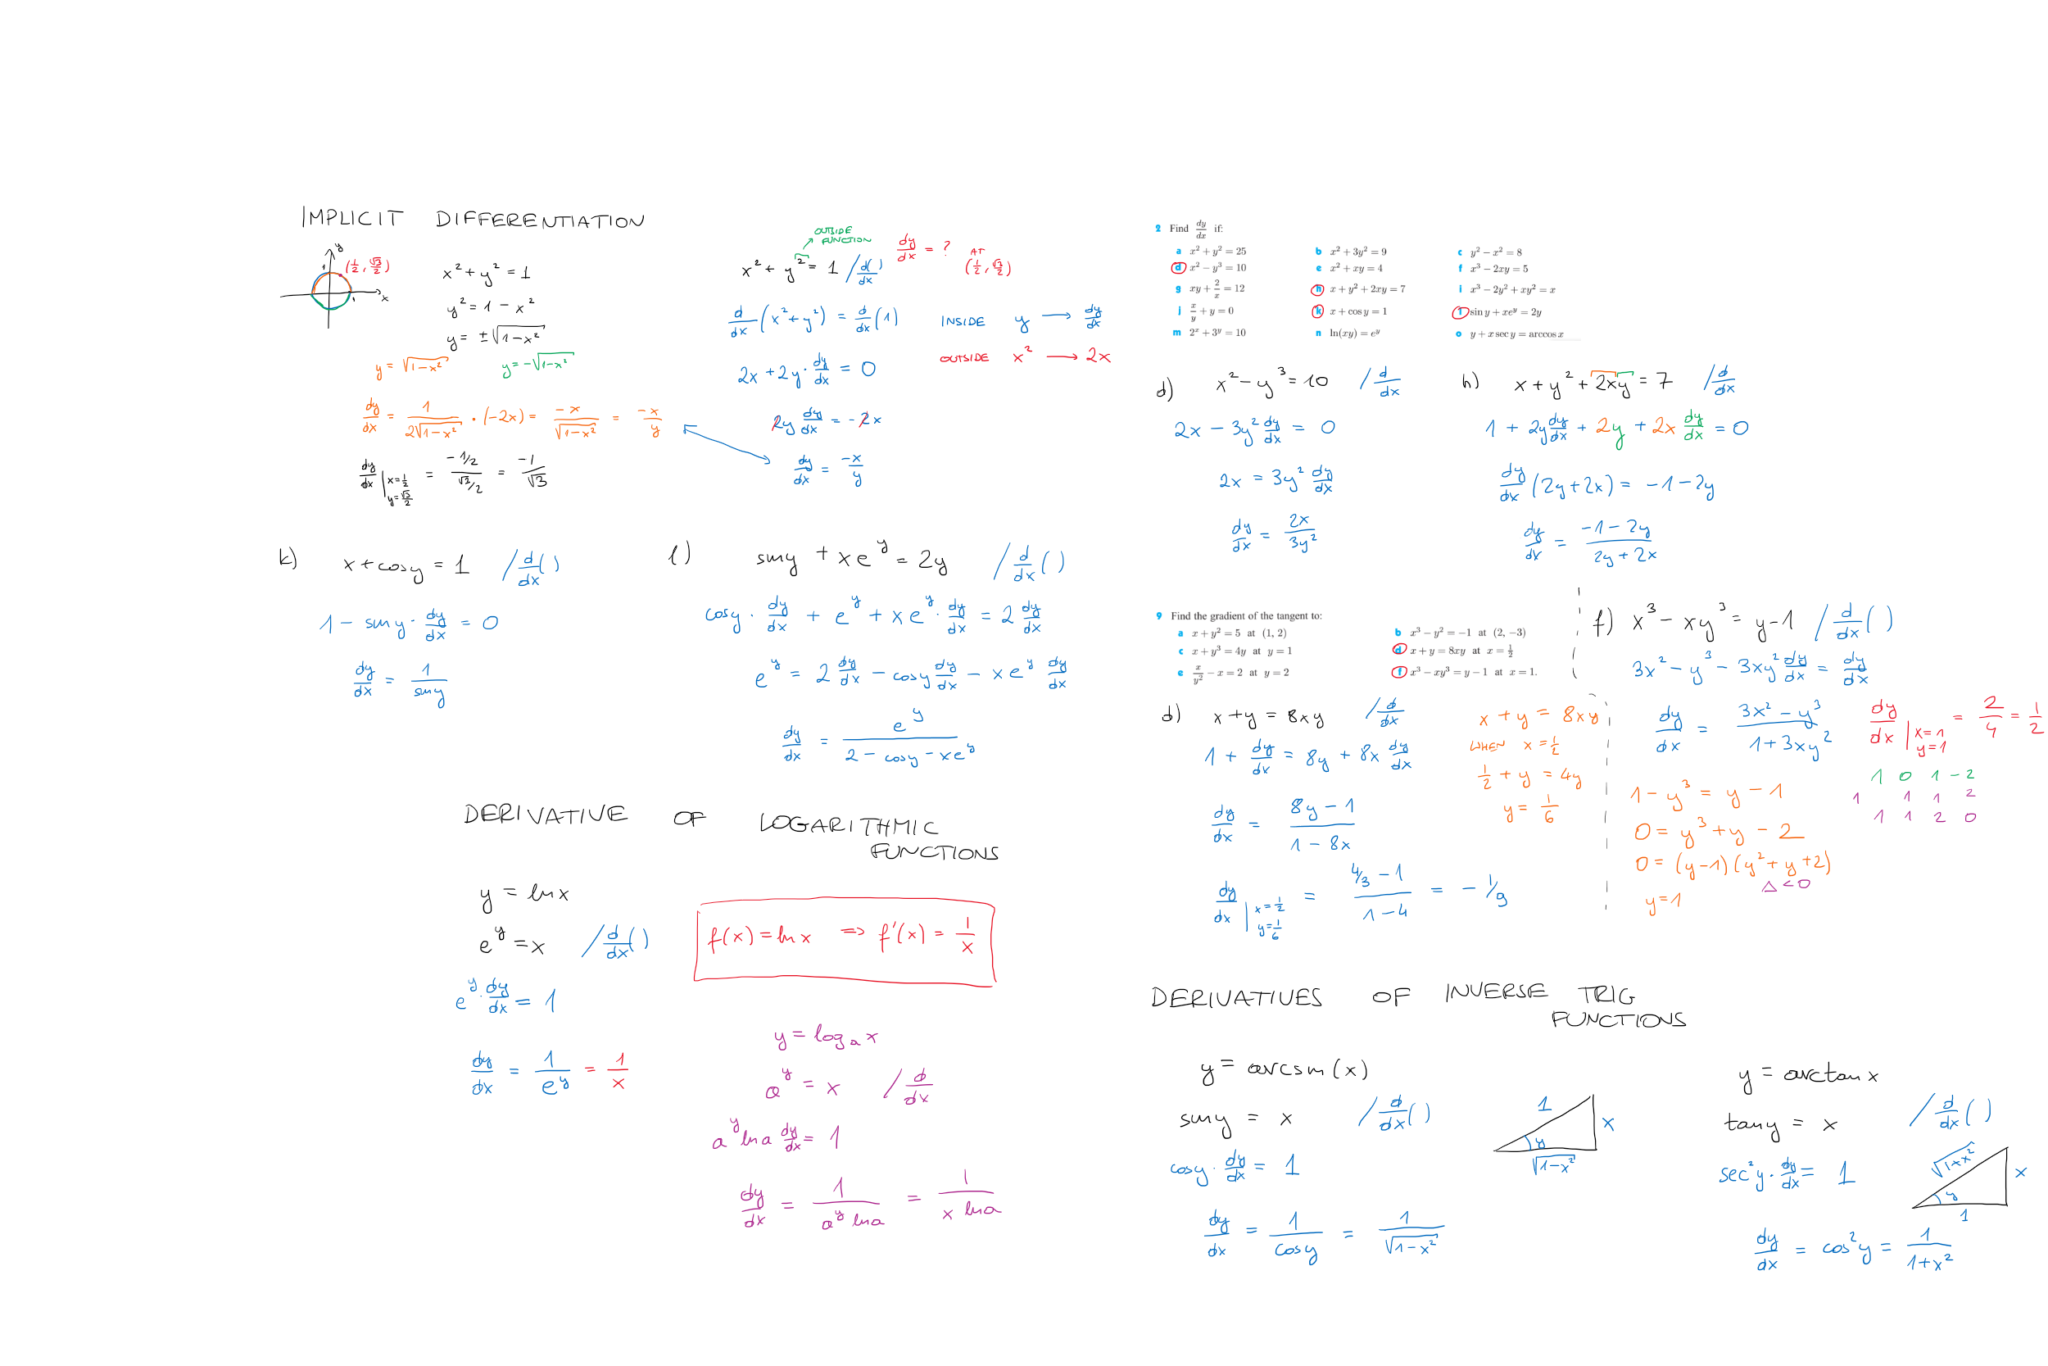 IMPLICIT DIFFERENTIATION
y
(1/2, √3/2)
1
x
1
x² + y² = 1
y² = 1 − x²
y = ±√(1−x²)
y = √(1−x²)
y = −√(1−x²)
dy/dx = 1/(2√(1−x²)) · (−2x) = −x/√(1−x²) = −x/y
dy/dx | x=1/2 y=√3/2 = (−1/2)/(√3/2) = −1/√3
OUTSIDE FUNCTION
x² + y² = 1 / d/dx( )
dy/dx = ? AT (1/2, √3/2)
d/dx (x² + y²) = d/dx (1)
INSIDE y → dy/dx
OUTSIDE x² → 2x
2x + 2y · dy/dx = 0
2y dy/dx = −2x
dy/dx = −x/y
2 Find dy/dx if:
a x² + y² = 25
b x² + 3y² = 9
c y² − x² = 8
d x² − y³ = 10
e x² + xy = 4
f x³ − 2xy = 5
g xy + 2/x = 12
h x + y² + 2xy = 7
i x³ − 2y² + xy² = x
j x/y + y = 0
k x + cos y = 1
l sin y + xe^y = 2y
m 2^x + 3^y = 10
n ln(xy) = e^y
o y + x sec y = arccos x
d) x² − y³ = 10 / d/dx
2x − 3y² dy/dx = 0
2x = 3y² dy/dx
dy/dx = 2x/3y²
h) x + y² + 2xy = 7 / d/dx
1 + 2y dy/dx + 2y + 2x dy/dx = 0
dy/dx (2y + 2x) = −1 − 2y
dy/dx = (−1 − 2y)/(2y + 2x)
k) x + cosy = 1 / d/dx( )
1 − siny · dy/dx = 0
dy/dx = 1/siny
l) siny + xe^y = 2y / d/dx( )
cosy · dy/dx + e^y + xe^y · dy/dx = 2 dy/dx
e^y = 2 dy/dx − cosy dy/dx − xe^y dy/dx
dy/dx = e^y/(2 − cosy − xe^y)
9 Find the gradient of the tangent to:
a x + y² = 5 at (1, 2)
b x³ − y² = −1 at (2, −3)
c x + y³ = 4y at y = 1
d x + y = 8xy at x = 1/2
e x/y² − x = 2 at y = 2
f x³ − xy³ = y − 1 at x = 1.
d) x + y = 8xy / d/dx
1 + dy/dx = 8y + 8x dy/dx
dy/dx = (8y − 1)/(1 − 8x)
dy/dx | x=1/2 y=1/6 = (4/3 − 1)/(1 − 4) = −1/9
x + y = 8xy
WHEN x = 1/2
1/2 + y = 4y
y = 1/6
f) x³ − xy³ = y − 1 / d/dx( )
3x² − y³ − 3xy² dy/dx = dy/dx
dy/dx = (3x² − y³)/(1 + 3xy²)
dy/dx | x=1 y=1 = 2/4 = 1/2
1 − y³ = y − 1
0 = y³ + y − 2
0 = (y−1)(y² + y + 2)
Δ < 0
y = 1
1 0 1 −2
1 1 1 2
1 1 2 0
DERIVATIVE OF LOGARITHMIC FUNCTIONS
y = lnx
e^y = x / d/dx( )
e^y · dy/dx = 1
dy/dx = 1/e^y = 1/x
f(x) = ln x ⇒ f'(x) = 1/x
y = log_a x
a^y = x / d/dx
a^y lna dy/dx = 1
dy/dx = 1/(a^y lna) = 1/(x lna)
DERIVATIVES OF INVERSE TRIG FUNCTIONS
y = arcsin(x)
siny = x / d/dx( )
cosy · dy/dx = 1
dy/dx = 1/cosy = 1/√(1−x²)
1
x
y
√(1−x²)
y = arctanx
tany = x / d/dx( )
sec²y · dy/dx = 1
dy/dx = cos²y = 1/(1+x²)
√(1+x²)
x
y
1